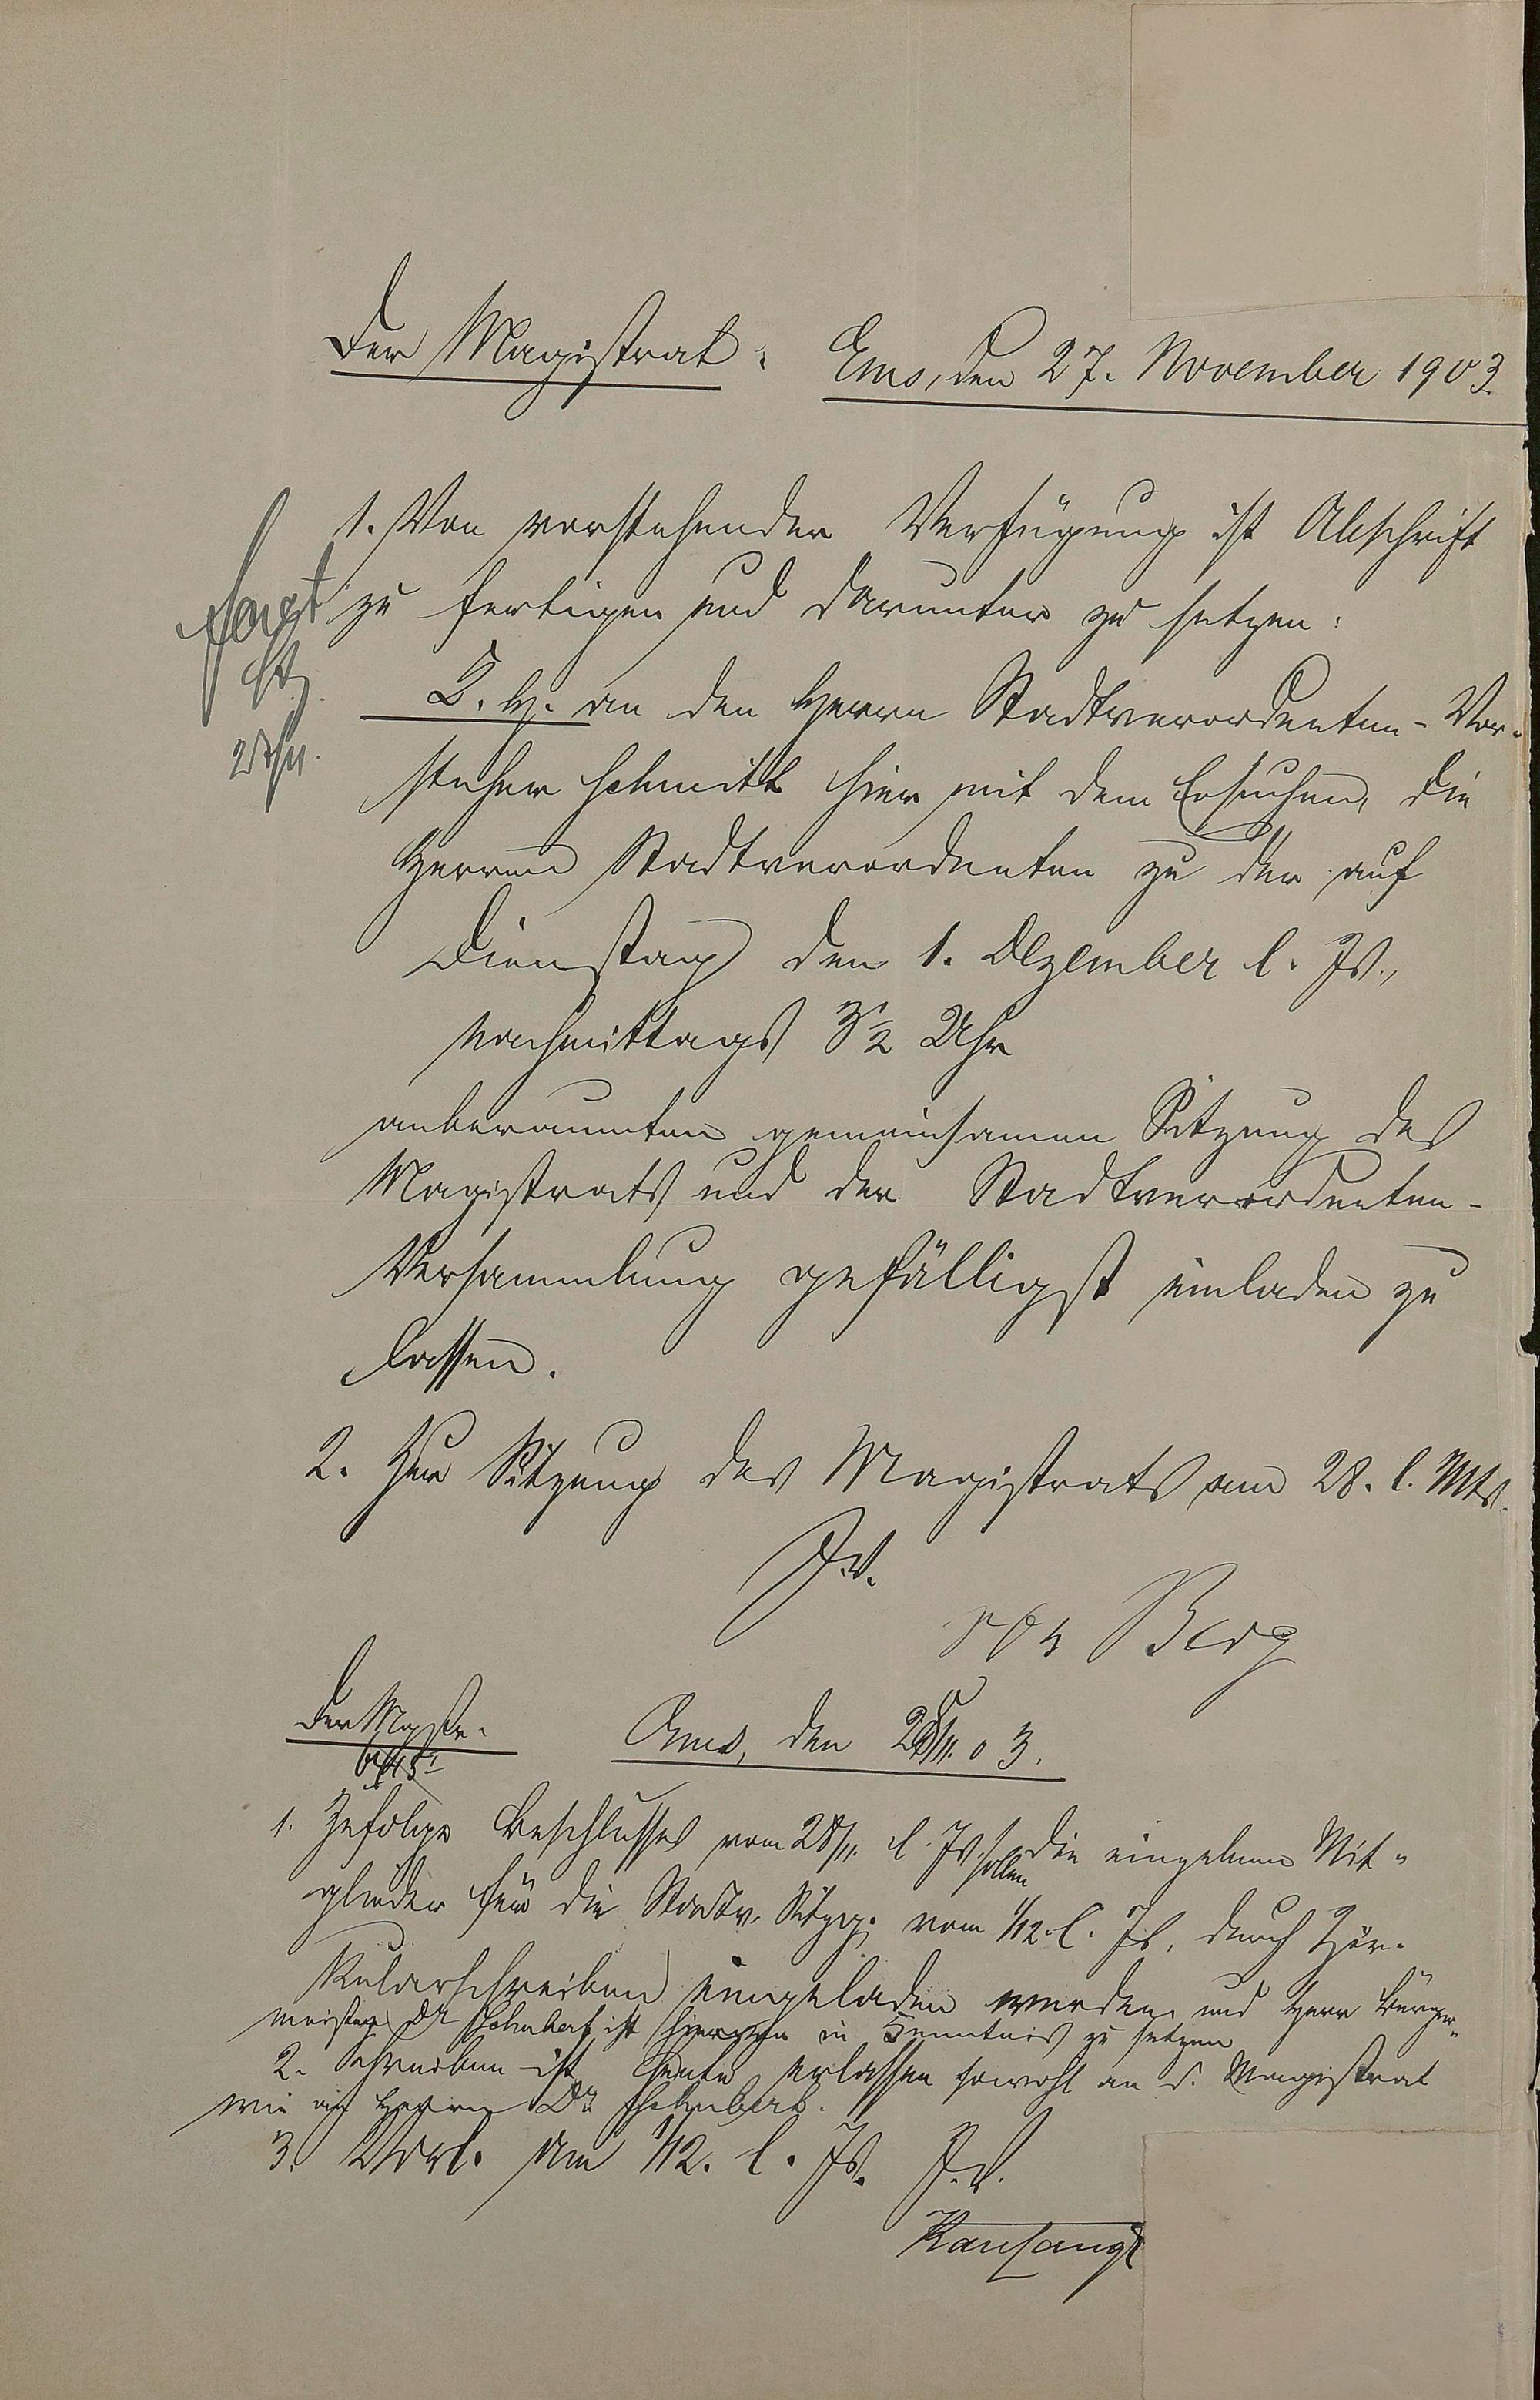 Der Magistrat.
Ems, den 27. November 1903.
1. Von vorstehender Verfügung ist Abschrift
zu fertigen und darunter zu setzen:
U. an den Herrn Stadtverordneten-Vor-
steher Schmitt hier mit dem Ersuchen, die
Herren Stadtverordneten zu der auf
Dienstag den 1. Dezember l. Js.,
nachmittags 3½ Uhr
anberaumten gemeinsamen Sitzung des
Magistrats und der Stadtverordneten-
Versammlung gefälligst einladen zu
lassen.
2. Zur Sitzung des Magistrats am 28. l. Mts.
J.V.
Berg
Der Mgstr.
Ems, den 28/11. 03.
1. Zufolge Beschlusses vom 28/11. l. Js. sollen die einzelnen Mit-
glieder für die Stadtv. Sitzg. vom 1/12. l. Js. durch Zir-
kularschreiben eingeladen werden und Herr Bürger-
meister Dr. ist hiervon in Kenntnis zu setzen
2. Schreiben ist heute erlassen sowohl an d. Magistrat
wie an Herrn Dr.
3. Vorl. am 1/12. l. Js. J.V.